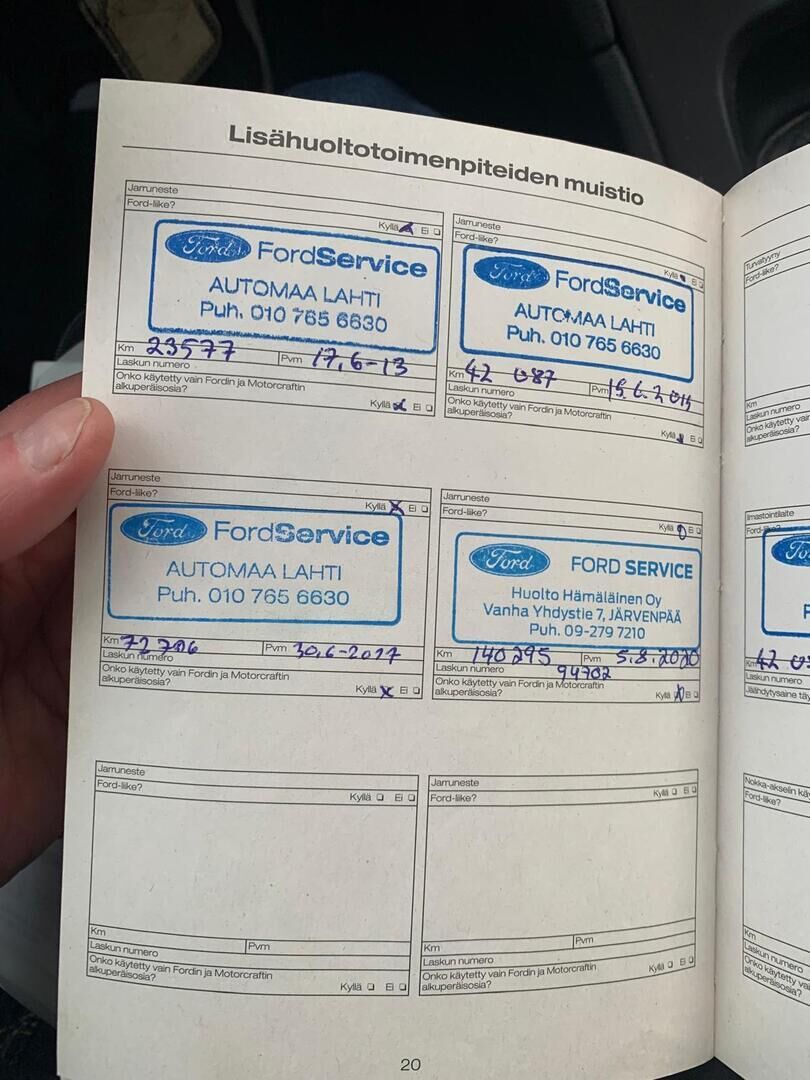 Lisähuoltotoimenpiteiden muistio
Jarruneste
Ford-liike?
Kyllä Ei
Ford FordService
AUTOMAA LAHTI
Puh. 010 765 6630
Km 23577 Pvm 17.6-13
Laskun numero
Onko käytetty vain Fordin ja Motorcraftin
alkuperäisosia?
Kyllä Ei
Jarruneste
Ford-liike?
Kyllä Ei
Ford FordService
AUTOMAA LAHTI
Puh. 010 765 6630
Km 42 087 Pvm 15.6.2015
Laskun numero
Onko käytetty vain Fordin ja Motorcraftin
alkuperäisosia?
Kyllä Ei
Jarruneste
Ford-liike?
Kyllä X Ei
Ford FordService
AUTOMAA LAHTI
Puh. 010 765 6630
Km Pvm 30.6-2017
Laskun numero
Onko käytetty vain Fordin ja Motorcraftin
alkuperäisosia?
Kyllä X Ei
Jarruneste
Ford-liike?
Kyllä Ei
Ford FORD SERVICE
Huolto Hämäläinen Oy
Vanha Yhdystie 7, JÄRVENPÄÄ
Puh. 09-279 7210
Km 140295 Pvm 5.8.2020
Laskun numero 94702
Onko käytetty vain Fordin ja Motorcraftin
alkuperäisosia?
Kyllä Ei
Jarruneste
Ford-liike?
Kyllä Ei
Km
Laskun numero Pvm
Onko käytetty vain Fordin ja Motorcraftin
alkuperäisosia?
Kyllä Ei
Jarruneste
Ford-liike?
Kyllä Ei
Km Pvm
Laskun numero
Onko käytetty vain Fordin ja Motorcraftin
alkuperäisosia?
Kyllä Ei
20
Turvatyyny
Ford-liike?
Km
Laskun numero
Onko käytetty
alkuperäisosia?
Ilmastointilaite
Ford
Km 42
Laskun numero
Jäähdytysaine
Nokka-akselin
Ford-liike?
Km
Laskun numero
Onko käytetty
alkuperäisosia?